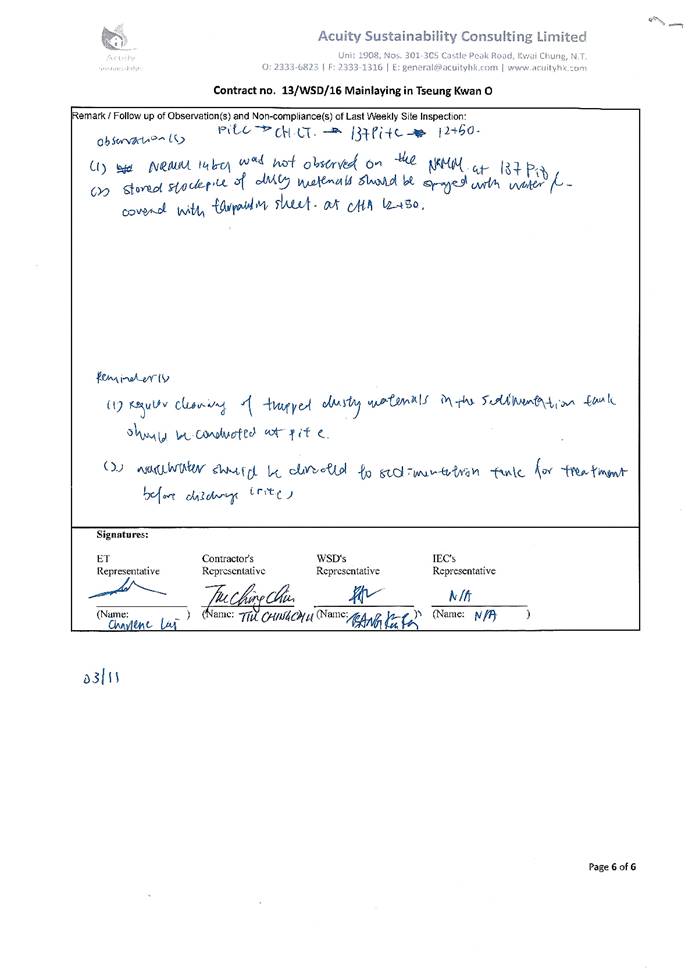 Acuity Sustainability Consulting Limited
Unit 1908, Nos. 301-305 Castle Peak Road, Kwai Chung, N.T.
O: 2333-6823 | F: 2333-1316 | E: general@acuityhk.com | www.acuityhk.com
Acuity
Sustainability
Contract no. 13/WSD/16 Mainlaying in Tseung Kwan O
Remark / Follow up of Observation(s) and Non-compliance(s) of Last Weekly Site Inspection:
Pit C → CH.CT. → 137 Pit C → 12+50.
Observation(s)
(1) NRMM label was not observed on the NRMM at 137 Pit
(2) stored stockpile of dusty materials should be sprayed with water /
covered with tarpaulin sheet. at CHA 12+50.
Reminder(s)
(1) Regular cleaning of trapped dusty materials in the sedimentation tank
should be conducted at pit C.
(2) wastewater should be directed to sedimentation tank for treatment
before discharge (Pit C)
Signatures:
ET Representative
Contractor's Representative
WSD's Representative
IEC's Representative
Tiu Ching Chu
N/A
(Name: Charlene Lui )
(Name: TIU CHING CHU
(Name: )
(Name: N/A )
03/11
Page 6 of 6